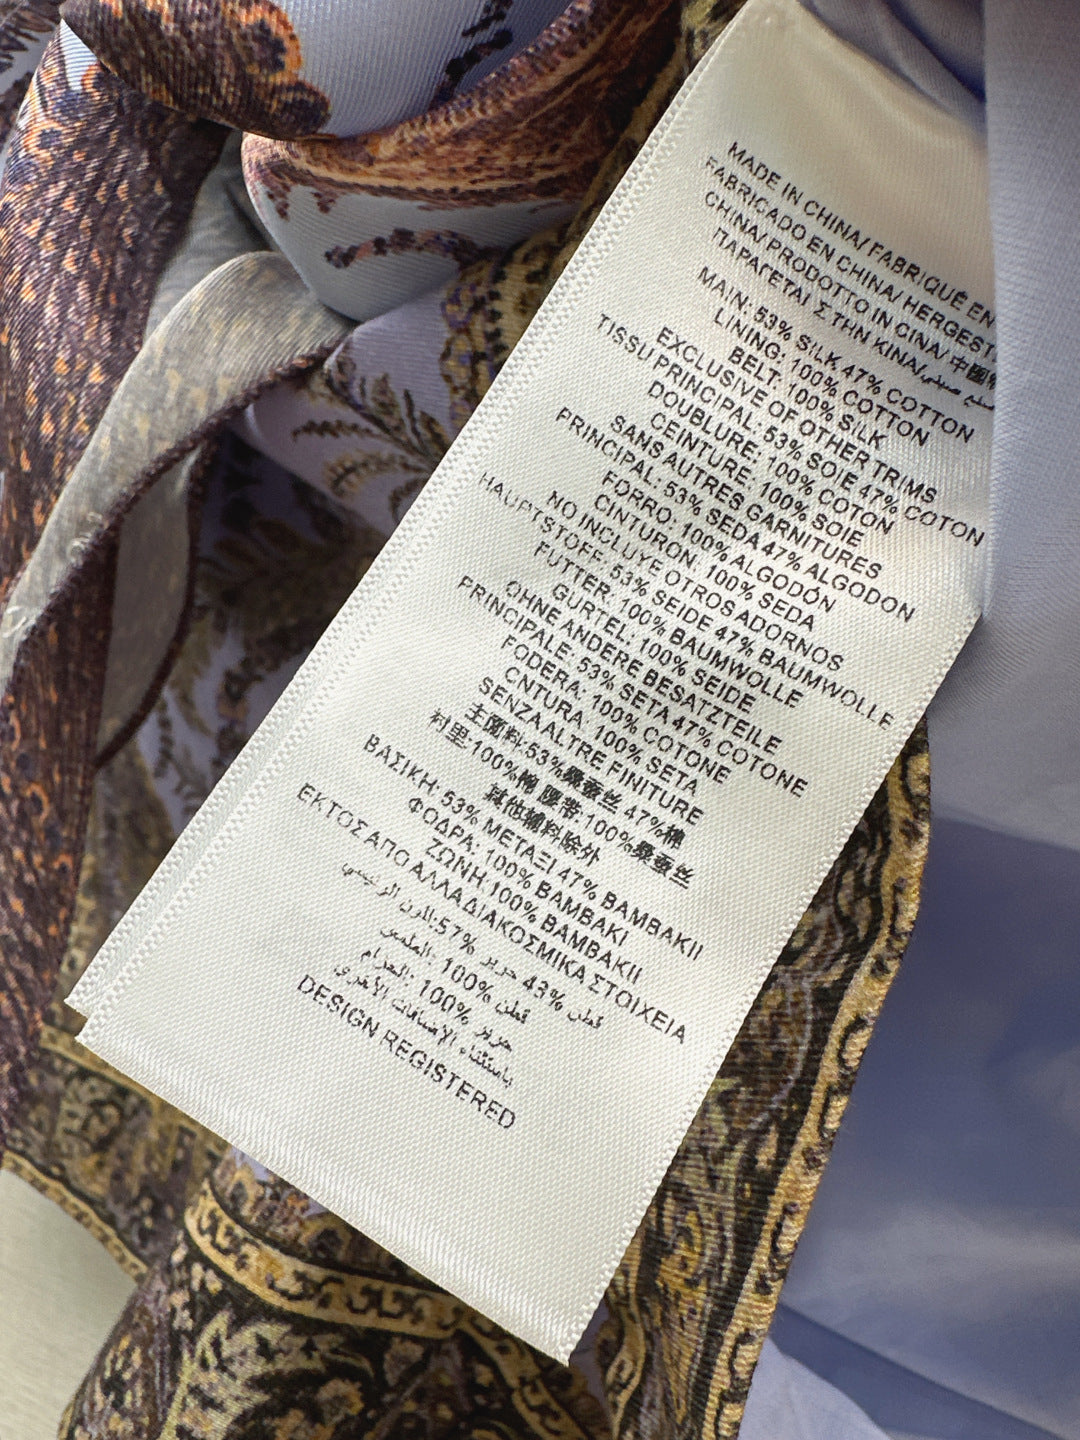 MADE IN CHINA/ FABRIQUÉ EN
FABRICADO EN CHINA/ HERGEST
CHINA/PRODOTTO IN CINA/ 中國
ΠΑΡΑΓΕΤΑΙ ΣΤΗΝ ΚΙΝΑ/
MAIN: 53% SILK 47% COTTON
LINING: 100% COTTON
BELT: 100% SILK
EXCLUSIVE OF OTHER TRIMS
TISSU PRINCIPAL: 53% SOIE 47% COTON
DOUBLURE: 100% COTON
CEINTURE: 100% SOIE
SANS AUTRES GARNITURES
PRINCIPAL: 53% SEDA 47% ALGODON
FORRO: 100% ALGODÓN
CINTURON: 100% SEDA
NO INCLUYE OTROS ADORNOS
HAUPTSTOFF: 53% SEIDE 47% BAUMWOLLE
FUTTER: 100% BAUMWOLLE
GURTEL: 100% SEIDE
OHNE ANDERE BESATZTEILE
PRINCIPALE: 53% SETA 47% COTONE
FODERA: 100% COTONE
CNTURA: 100% SETA
SENZA ALTRE FINITURE
主面料:53%桑蚕丝 47%棉
衬里:100%棉 腰带:100%桑蚕丝
其他辅料除外
ΒΑΣΙΚΗ: 53% ΜΕΤΑΞΙ 47% ΒΑΜΒΑΚΙΙ
ΦΟΔΡΑ: 100% ΒΑΜΒΑΚΙ
ΖΩΝΗ:100% ΒΑΜΒΑΚΙΙ
ΕΚΤΟΣ ΑΠΟ ΑΛΛΑΔΙΑΚΟΣΜΙΚΑ ΣΤΟΙΧΕΙΑ
قطن %43 حرير %57: الرئيسي
قطن %100 :
حرير %100 : الحزام
باستثناء الإضافات الأخرى
DESIGN REGISTERED